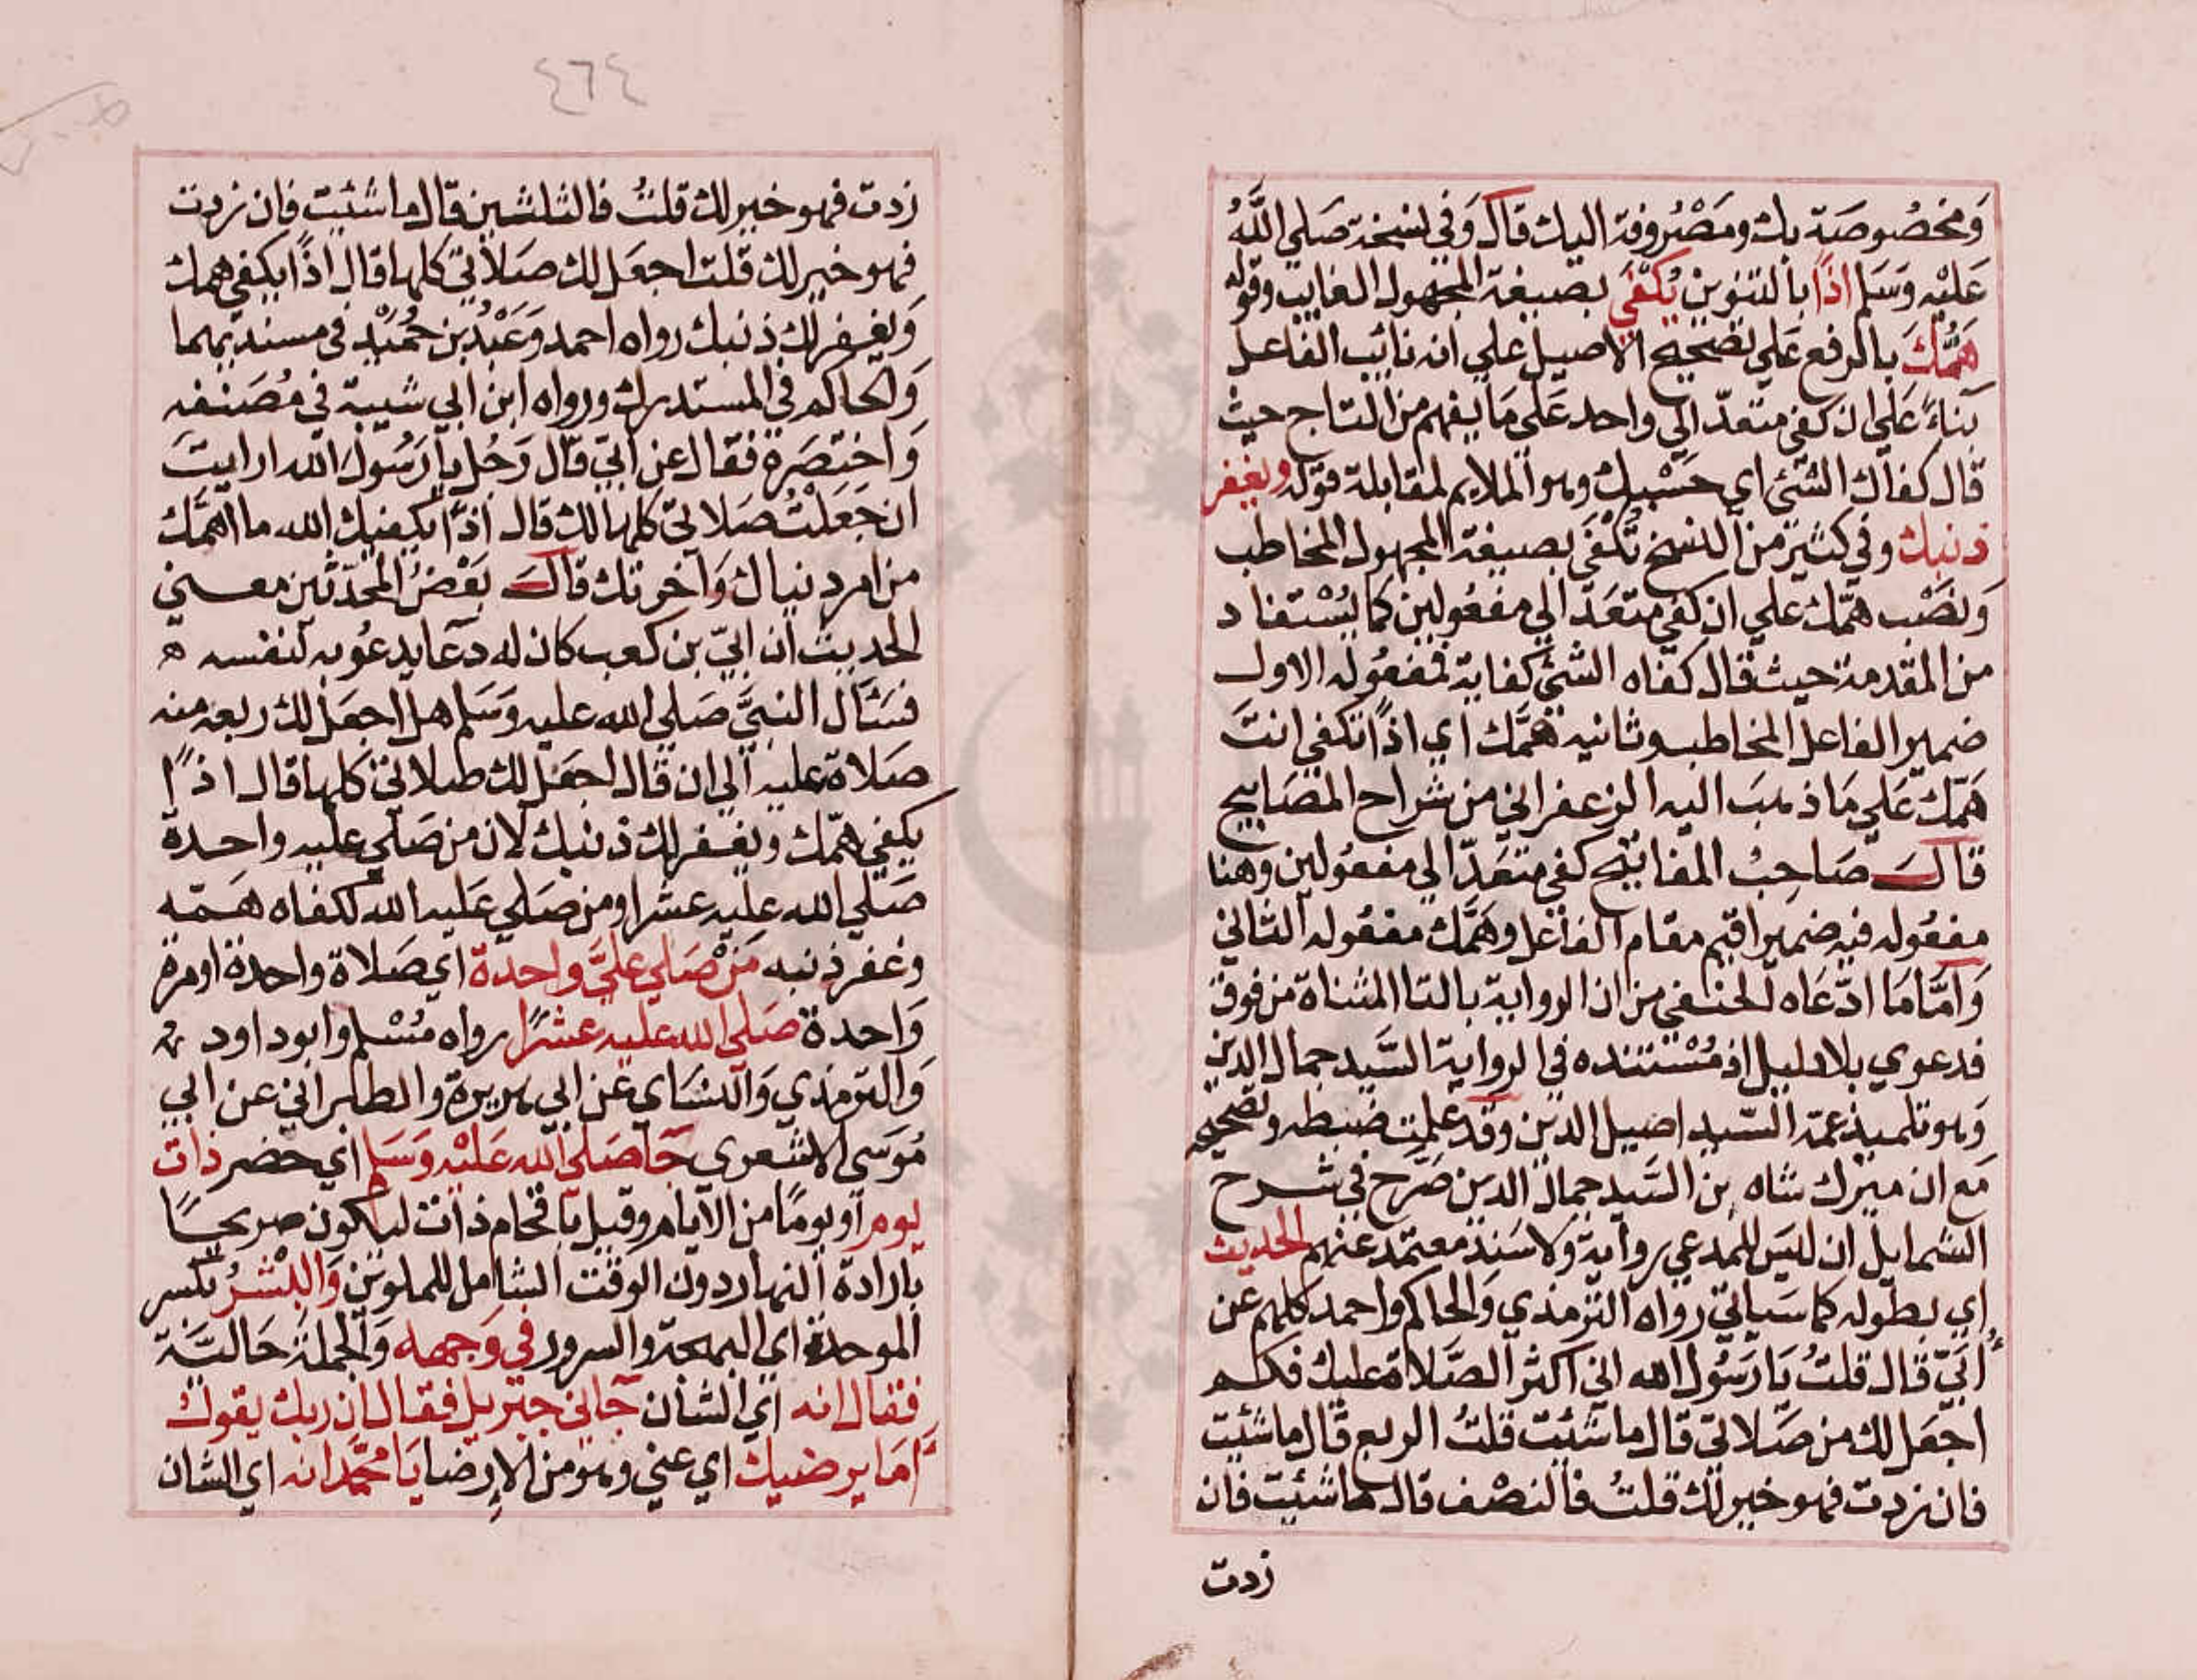 وَمخصُوصَة بك ومَصْروفة اليك قال وَفي نسخة صَلي اللّٰهُ
عَليْه وَسَلم اذاً بالتنوين يُكفَي بصيغة المجهول الغايب وقوله
هَمُّكَ بالرفع عَلي تصحيح الاصيل علي انه نائب الفاعل
بناءً عَلي ان كفي متعدّ الي واحد عَلي مَا يفهم من التاج حيث
قال كفاك الشئ اي حَسْبك وهو الملايم لمقابلة قوله ويغفر
ذنبك وفي كثير من النسخ تُكفَي بصيغة المجهول المخاطب
وَنصَب همّك علي ان كفي متعَدّ الي مفعُولين كما يُسْتفاد
من المقدمة حيث قال كفاه الشئ كفاية فمفعُوله الاول
ضمير الفاعل المخاطب وثانيه همَّك اي اذاً تكفي انتَ
هَمّك عَلي مَا ذهبَ اليه الزعفراني من شراح المصَابيح
قال صَاحبُ المفاتيح كفي متعَدّ الي مفعُولين وهنا
مفعُوله فيه ضمير اقيم مقام الفاعل وهَمَّك مفعُوله الثاني
وَامَّا مَا ادّعَاه الحنفي من ان الرواية بالتا المثناة من فوق
فدعوي بلا دليل اذ مُسْتنده في الرواية السَّيد جمال الدين
وَهو تلميذ عمّه السّيد اصيل الدين وقد علمت ضبطه وتصحيحه
مَع ان ميرك شاه بن السَّيد جمال الدين صَرّح في شرح
الشمايل ان ليَس للمدعي رواية وَلا سَند معتمد عنهم الحديث
اي بطوله كما سَياتي رواه الترمذي وَالحاكم واحمد كلهم عن
اُبَيّ قال قلتُ يَا رَسُول الله اني اكثر الصَّلاة عليك فكم
اجعَل لك من صَلاتي قال ما شئيت قلتُ الربع قال ما شئيت
فان زدت فهو خير لك قلتُ فالنصْف قال ما شئيت فان
زدت
٤٦٤
زدت فهو خير لك قلتُ فالثلثين قال ما شئيت فان زدت
فهو خير لك قلت اجعَل لك صَلاتي كلها قال اذًا يكفي همك
وَيغفر لك ذنبك رواه احمد وَعَبْدُ بن حُمَيْدٍ في مسنديهما
وَالحاكم في المستدرك ورواه ابن ابي شيبة في مُصَنفه
وَاختصَرة فقال عن ابيّ قال رَجُل يا رَسُول الله ارايتَ
ان جَعَلْتُ صَلاتي كلها لك قال اذًا يكفيك الله ما اهَمَّك
من امر دنياك وَآخرتك قال بَعْضُ المحَدّثين معني
الحديث ان ابيّ بن كعب كان له دعَا يدعُو به لنفسه ه
فسَئال النبيَّ صَلي الله عليه وَسَلم هل اجعَل لك ربعه منه
صَلاة عليه الي ان قال اجعَل لك صلاتي كلها قال اذًا
يكفي همّك ويغفر لك ذنبك لان من صَلي عليه واحدة
صَلي الله عليه عشرا ومن صَلي عَليه الله لكفاه هَمّه
وغفر ذنبه مَنْ صَلي عليَّ واحدة اي صَلاة واحدة او مرة
وَاحدة صَلي الله عليه عشرًا رواه مُسْلم وابوداود
وَالترمذي وَالنسَاي عن ابي هريرة والطبراني عن ابي
مُوَسَي الاشعري جَا صَلي الله عَليْه وَسَلم اي حضر ذات
يوم اَو يومًا من الايام وقيل باقحام ذات ليكون صريحًا
بارادة النهار دون الوقت الشامل للملوين وَالبْشرُ بكسر
الموحدة اي البهجة والسرور في وَجهه وَالجملة حَاليَّة
فقال انه اي الشان جَاني جبريل فقال ان ربك يقول
اَمَا يرضيك اي عني وهو من الإرضا يَا محمَّد انه اي الشان